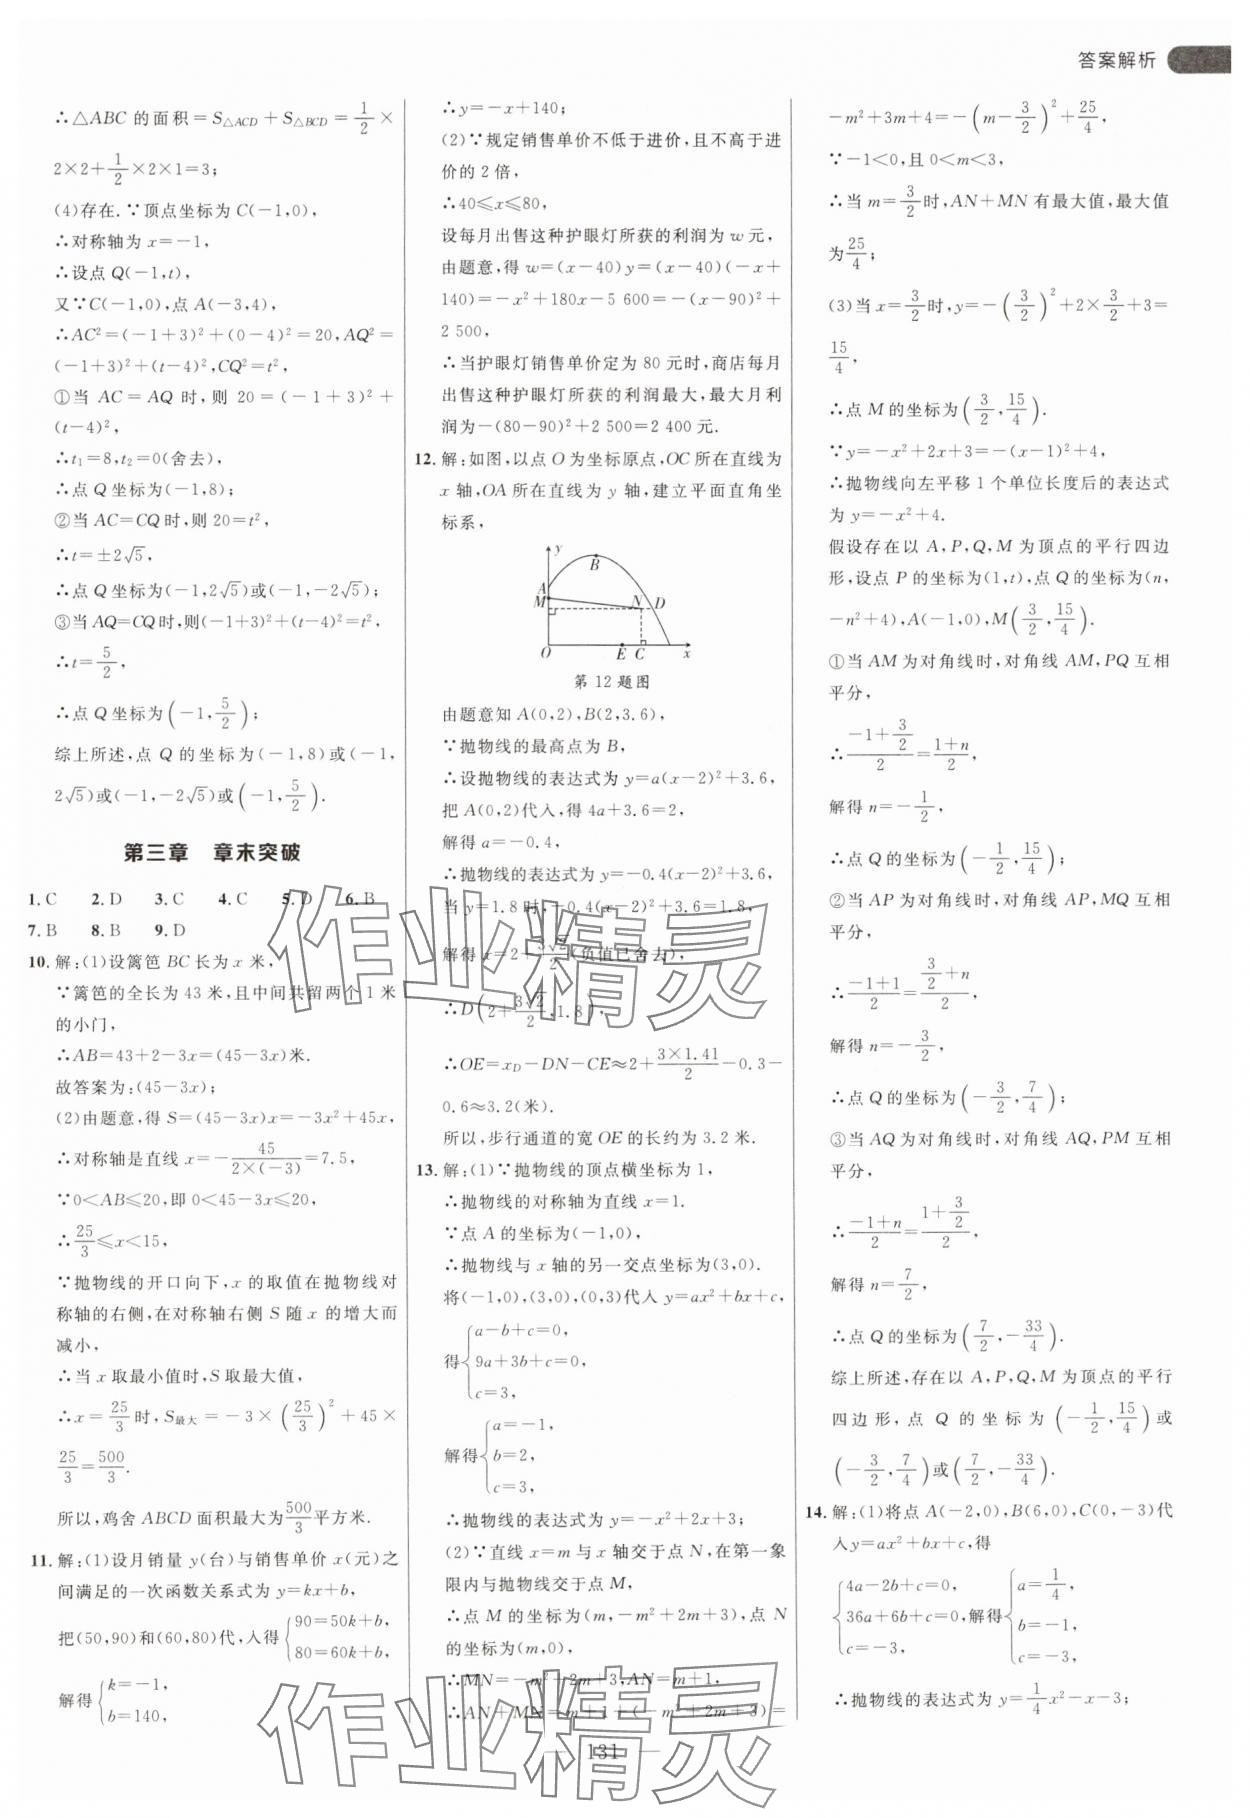 答案解析
∴△ABC 的面积=S△ACD+S△BCD=1/2×
2×2+1/2×2×1=3;
(4)存在.∵顶点坐标为C(-1,0),
∴对称轴为x=-1,
∴设点Q(-1,t),
又∵C(-1,0),点A(-3,4),
∴AC²=(-1+3)²+(0-4)²=20,AQ²=
(-1+3)²+(t-4)²,CQ²=t²,
①当 AC=AQ 时,则 20=(-1+3)²+
(t-4)²,
∴t₁=8,t₂=0(舍去),
∴点Q坐标为(-1,8);
②当AC=CQ时,则20=t²,
∴t=±2√5,
∴点Q坐标为(-1,2√5)或(-1,-2√5);
③当AQ=CQ时,则(-1+3)²+(t-4)²=t²,
∴t=5/2,
∴点Q坐标为(-1,5/2);
综上所述,点 Q 的坐标为(-1,8)或(-1,
2√5)或(-1,-2√5)或(-1,5/2).
第三章 章末突破
1.C 2.D 3.C 4.C 5.D 6.B
7.B 8.B 9.D
10.解:(1)设篱笆BC长为x米,
∵篱笆的全长为43米,且中间共留两个1米
的小门,
∴AB=43+2-3x=(45-3x)米.
故答案为:(45-3x);
(2)由题意,得S=(45-3x)x=-3x²+45x,
∴对称轴是直线x=-45/(2×(-3))=7.5,
∵0<AB≤20,即0<45-3x≤20,
∴25/3≤x<15,
∵抛物线的开口向下,x的取值在抛物线对
称轴的右侧,在对称轴右侧S随x的增大而
减小,
∴当x取最小值时,S取最大值,
∴x=25/3时,S最大=-3×(25/3)²+45×
25/3=500/3.
所以,鸡舍ABCD面积最大为500/3平方米.
11.解:(1)设月销量y(台)与销售单价x(元)之
间满足的一次函数关系式为y=kx+b,
把(50,90)和(60,80)代,入得{90=50k+b,
80=60k+b,
解得{k=-1,
b=140,
∴y=-x+140;
(2)∵规定销售单价不低于进价,且不高于进
价的2倍,
∴40≤x≤80,
设每月出售这种护眼灯所获的利润为w元,
由题意,得w=(x-40)y=(x-40)(-x+
140)=-x²+180x-5 600=-(x-90)²+
2 500,
∴当护眼灯销售单价定为80元时,商店每月
出售这种护眼灯所获的利润最大,最大月利
润为-(80-90)²+2 500=2 400元.
12.解:如图,以点O为坐标原点,OC所在直线为
x轴,OA所在直线为y轴,建立平面直角坐
标系,
y
B
A
M
N D
O E C x
第12题图
由题意知A(0,2),B(2,3.6),
∵抛物线的最高点为B,
∴设抛物线的表达式为y=a(x-2)²+3.6,
把A(0,2)代入,得4a+3.6=2,
解得a=-0.4,
∴抛物线的表达式为y=-0.4(x-2)²+3.6,
当y=1.8时,-0.4(x-2)²+3.6=1.8,
解得x=2+3√2/2(负值已舍去),
∴D(2+3√2/2,1.8),
∴OE=x_D-DN-CE≈2+3×1.41/2-0.3-
0.6≈3.2(米).
所以,步行通道的宽OE的长约为3.2米.
13.解:(1)∵抛物线的顶点横坐标为1,
∴抛物线的对称轴为直线x=1.
∵点A的坐标为(-1,0),
∴抛物线与x轴的另一交点坐标为(3,0).
将(-1,0),(3,0),(0,3)代入y=ax²+bx+c,
得{a-b+c=0,
9a+3b+c=0,
c=3,
解得{a=-1,
b=2,
c=3,
∴抛物线的表达式为y=-x²+2x+3;
(2)∵直线x=m与x轴交于点N,在第一象
限内与抛物线交于点M,
∴点M的坐标为(m,-m²+2m+3),点N
的坐标为(m,0),
∴MN=-m²+2m+3,AN=m+1,
∴AN+MN=m+1+(-m²+2m+3)=
-m²+3m+4=-(m-3/2)²+25/4,
∵-1<0,且0<m<3,
∴当m=3/2时,AN+MN有最大值,最大值
为25/4;
(3)当x=3/2时,y=-(3/2)²+2×3/2+3=
15/4,
∴点M的坐标为(3/2,15/4).
∵y=-x²+2x+3=-(x-1)²+4,
∴抛物线向左平移1个单位长度后的表达式
为y=-x²+4.
假设存在以A,P,Q,M为顶点的平行四边
形,设点P的坐标为(1,t),点Q的坐标为(n,
-n²+4),A(-1,0),M(3/2,15/4).
①当AM为对角线时,对角线AM,PQ互相
平分,
∴(-1+3/2)/2=(1+n)/2,
解得n=-1/2,
∴点Q的坐标为(-1/2,15/4);
②当AP为对角线时,对角线AP,MQ互相
平分,
∴(-1+1)/2=(3/2+n)/2,
解得n=-3/2,
∴点Q的坐标为(-3/2,7/4);
③当AQ为对角线时,对角线AQ,PM互相
平分,
∴(-1+n)/2=(1+3/2)/2,
解得n=7/2,
∴点Q的坐标为(7/2,-33/4).
综上所述,存在以A,P,Q,M为顶点的平行
四边形,点 Q 的坐标为(-1/2,15/4)或
(-3/2,7/4)或(7/2,-33/4).
14.解:(1)将点A(-2,0),B(6,0),C(0,-3)代
入y=ax²+bx+c,得
{4a-2b+c=0,
36a+6b+c=0,
c=-3,
解得{a=1/4,
b=-1,
c=-3,
∴抛物线的表达式为y=1/4x²-x-3;
131
作业精灵
作业精灵